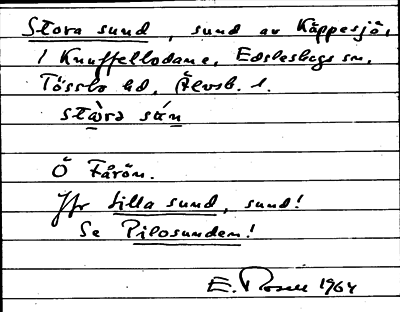 Stora sund, sund av Käppesjö,
i Knuffellodane, Edsleskogs sn,
Tössbo hd, Älvsb. l.
stàra sún
Ö Fårön.
Jfr Lilla sund, sund!
Se Pilosunden!
E. Rosell 1964